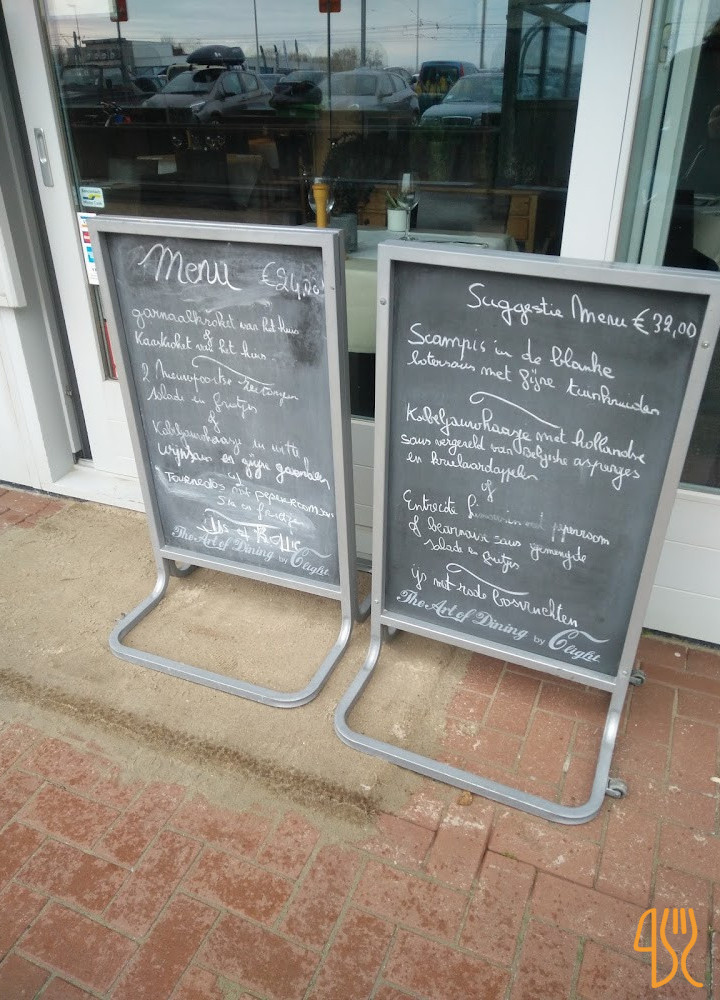 Menu €24,00
garnaalkroket van het Huis
&
Kaaskroket van het huis
2 Nieuwpoortse zeetongen
salade en frietjes
of
Kabeljauwhaasje in witte
wijnsaus en fijne groenten
of
Tournedos met peperroomsaus
sla en frietjes
The Art of Dining by Clight
Suggestie Menu € 32,00
Scampis in de blanke
botersaus met fijne tuinkruiden
Kabeljauwhaasje met hollandse
saus vergezeld van Belgische asperges
en krielaardappelen
of
Entrecote peperroom
of bearnaise saus gemengde
salade en frietjes
ijs met rode bosvruchten
The Art of Dining by Clight